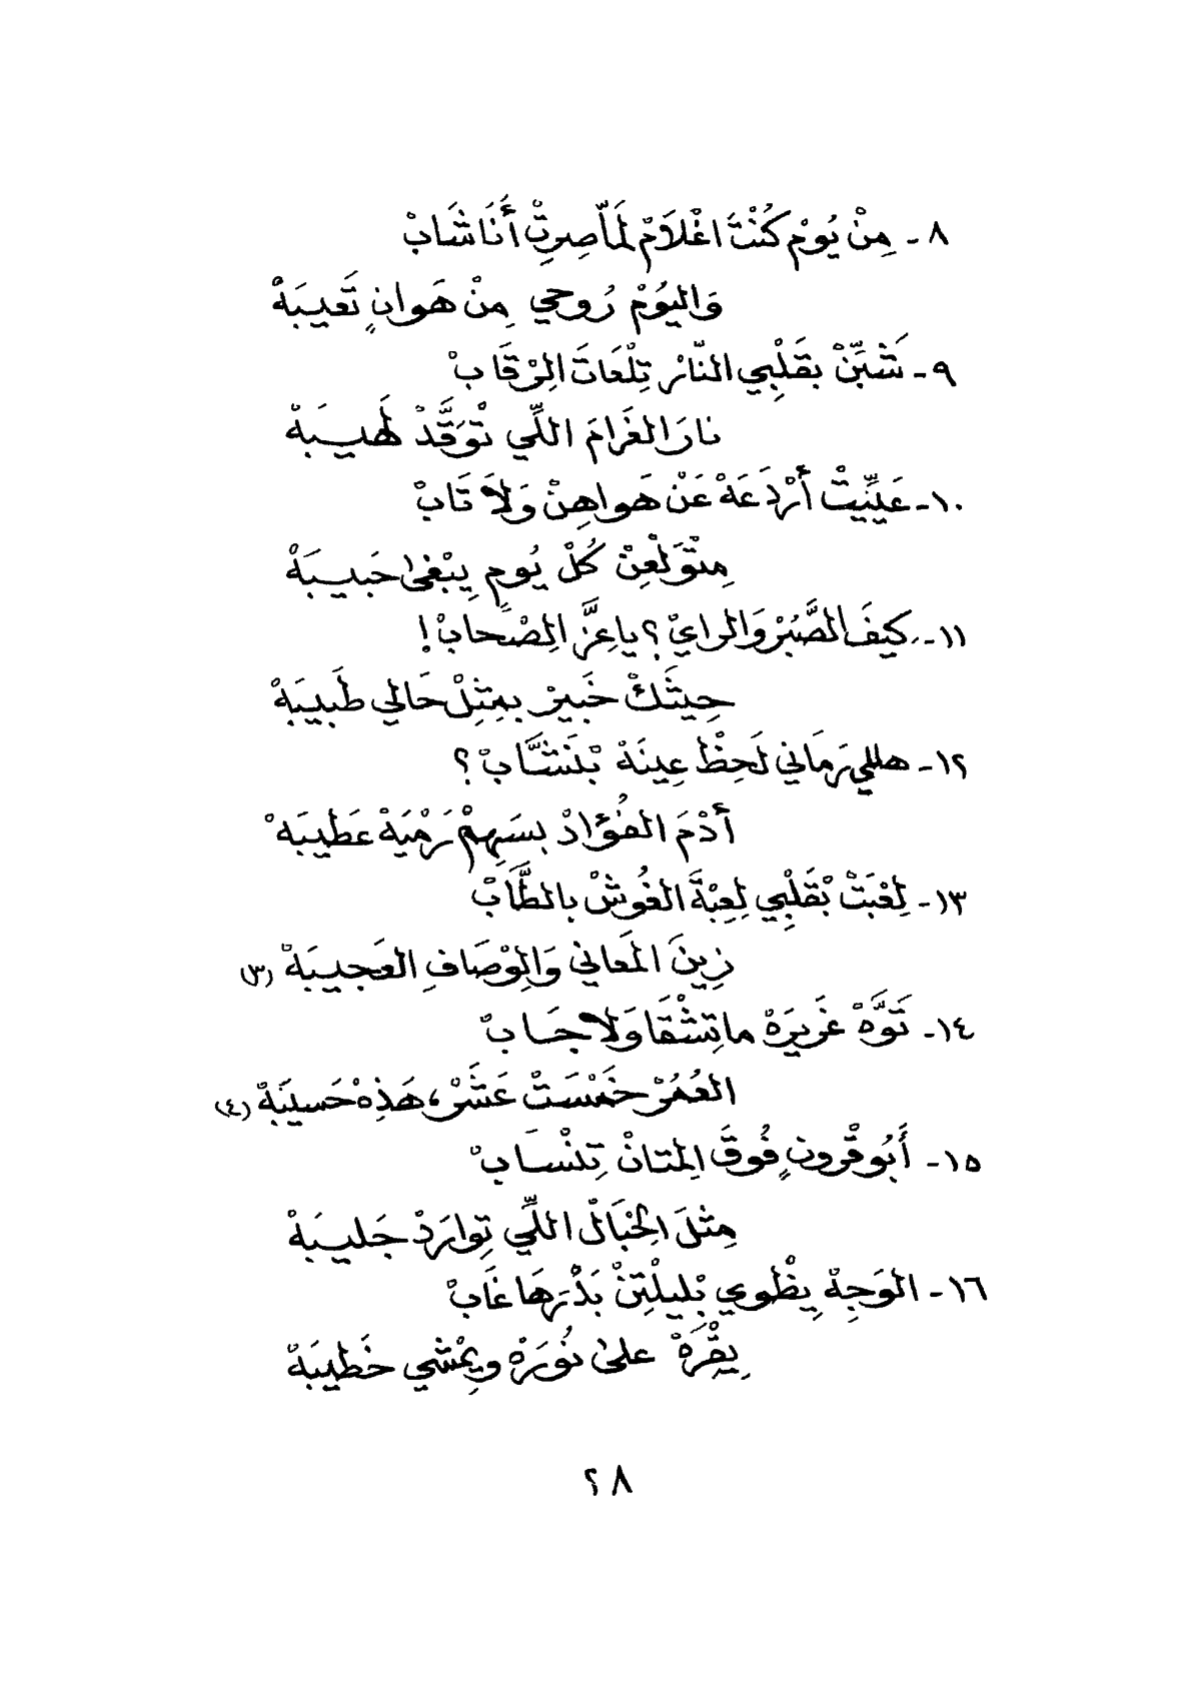 ٨ - مِنْ يُومْ كُنْتَ اغْلَامْ لَمَّا صِرِتْ أَنَا شَابْ
وَاليُومْ رُوحي مِنْ هَوانٍ تَعيبَهْ
٩ - شَبِّنْ بقَلْبِي النّارْ تِلْعَاتَ الِرْقَابْ
نارَ الغَرامَ اللِّي تْوَقَّدْ لَهيبَهْ
١٠ - عَيِّيتْ أَرْدَعَهْ عَنْ هَواهِنْ وَلَا تَابْ
مِتْوَلْعِنْ كُلْ يُومٍ يِبْغى حَبيبَهْ
١١ - كيفَ الصَّبُرْ وَالرايْ؟ ياعِزَّ الِصْحابْ!
حِيثَكْ خَبيرْ بمِثِلْ حَالي طَبيبَهْ
١٢ - هللي رَمَاني لَحِظْ عِينَهْ بْنَشَّابْ؟
أَدْمَ الفُؤادْ بسَهِمْ رَمْيَهْ عَطيبَهْ
١٣ - لِعْبَتْ بْقَلْبِي لِعِبْةَ الغُوشْ بالطَّابْ
زِينَ المَعاني وَالِوْصَافِ العَجيبَهْ (٣)
١٤ - تَوَّهْ غَريرَهْ ماتِشْقَا وَلا جَابْ
العُمُرْ خمَسَتْ عَشَرْ، هَذِهْ حَسيبَهْ (٤)
١٥ - أَبُو قْرونٍ فُوقَ الِمتانْ تِنْسَابْ
مِثلَ الِحْبَالْ اللِّي تِوارَدْ جَليبَهْ
١٦ - الوَجِهْ يِظْوي بْليلْتِنْ بَدْرَها غَابْ
يِقْرَهْ على نُورَهْ ويِمْشي خَطيبَهْ
٢٨